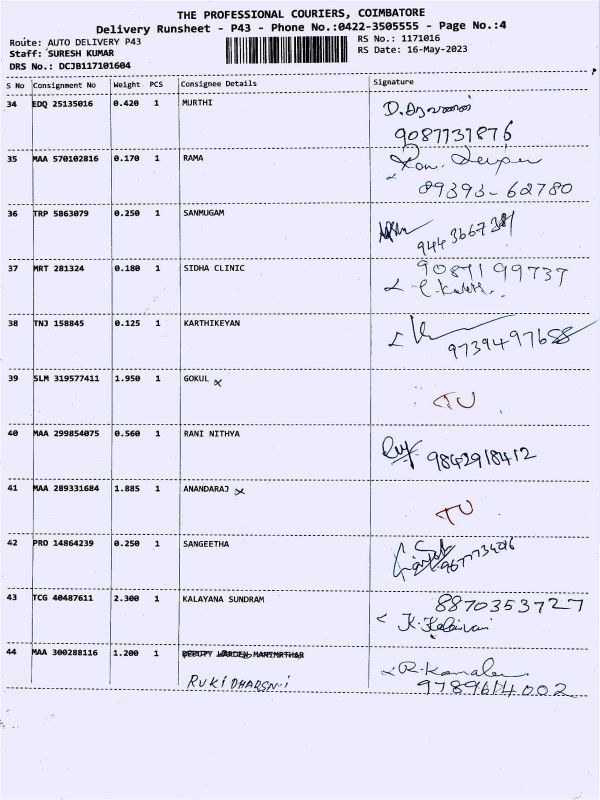 THE PROFESSIONAL COURIERS, COIMBATORE
Delivery Runsheet - P43 - Phone No.:0422-3505555 - Page No.:4
Route: AUTO DELIVERY P43
RS No.: 1171016
Staff: SURESH KUMAR
RS Date: 16-May-2023
DRS No.: DCJB117101604
S No Consignment No Weight PCS Consignee Details Signature
34 EDQ 25135016 0.420 1 MURTHI
9087737876
35 MAA 570102816 0.170 1 RAMA
89393-62780
36 TRP 5863079 0.250 1 SANMUGAM
37 MRT 281324 0.180 1 SIDHA CLINIC
9087199737
38 TNJ 158845 0.125 1 KARTHIKEYAN
39 SLM 319577411 1.950 1 GOKUL x
TU
40 MAA 299854075 0.560 1 RANI NITHYA
9842918412
41 MAA 289331684 1.885 1 ANANDARAJ x
TU
42 PRO 14864239 0.250 1 SANGEETHA
43 TCG 40487611 2.300 1 KALAYANA SUNDRAM
8870353727
44 MAA 300288116 1.200 1 DEPUTY WARDEN
RUKIDHARSNI
9789614002